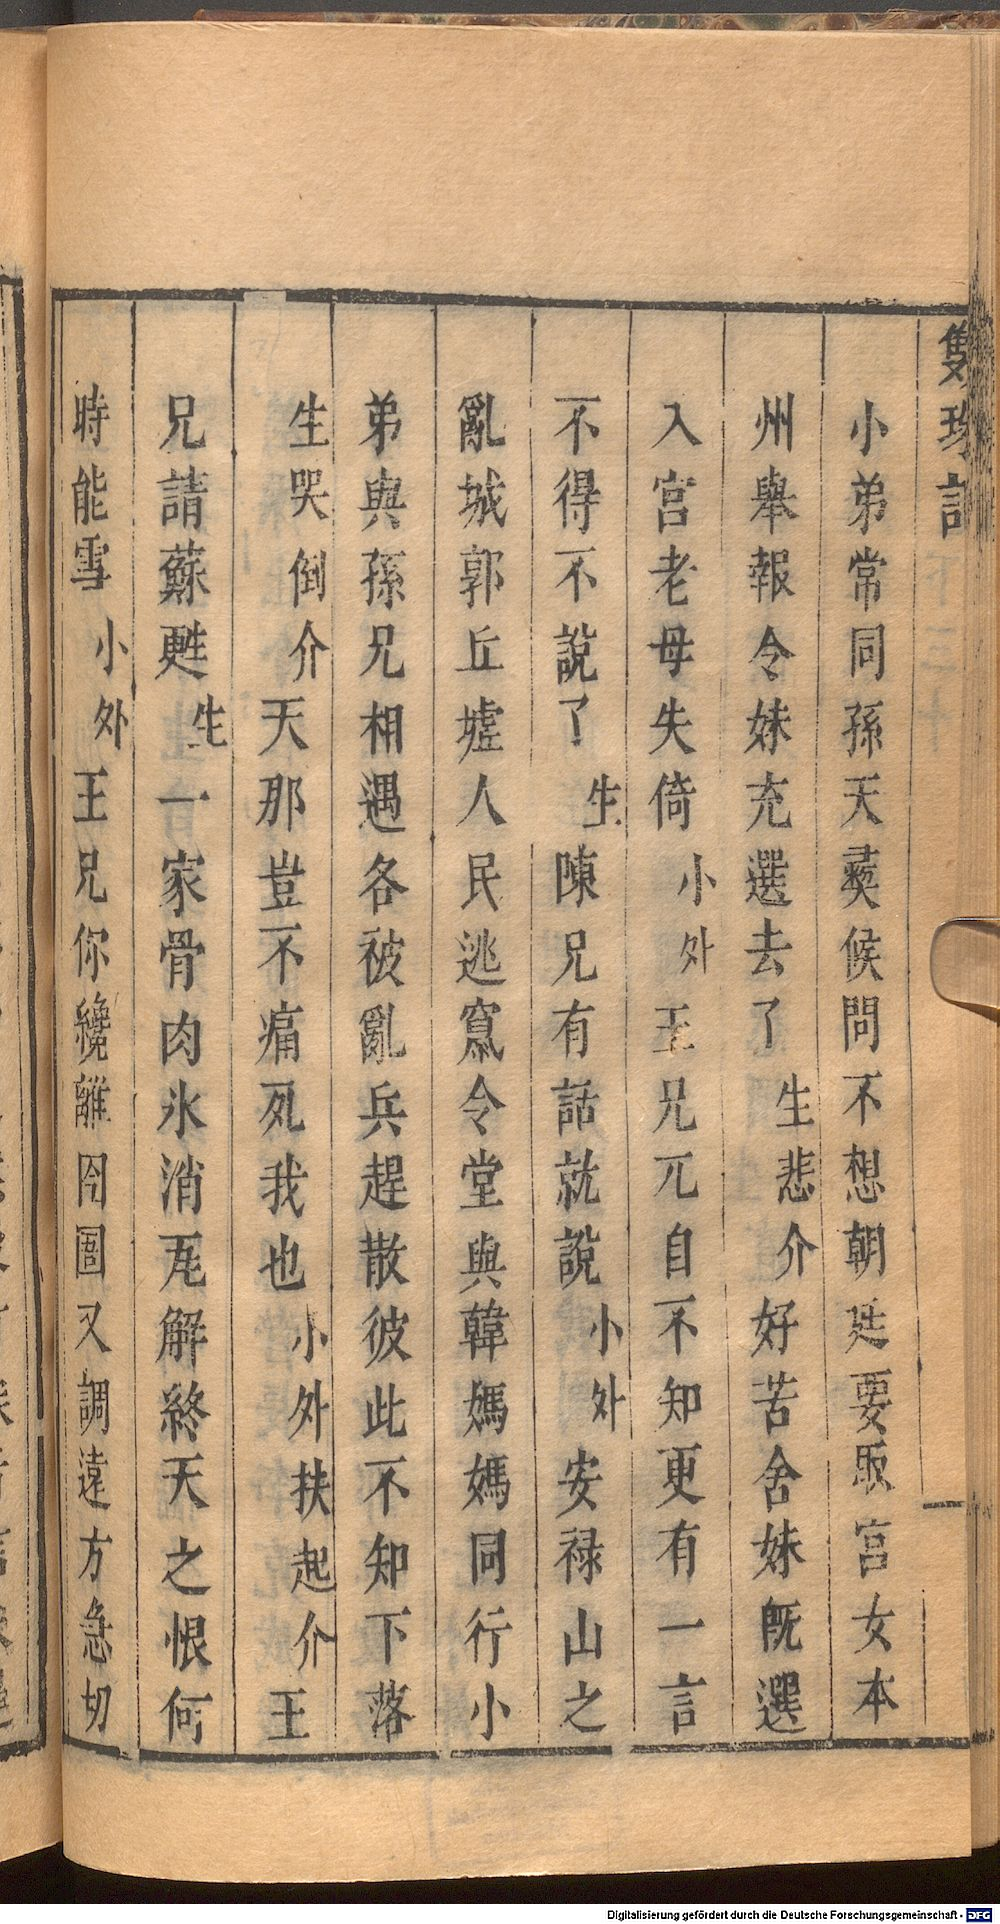 雙珠記
小弟常同孫天彝候問不想朝廷要取宮女本
州舉報令妹充選去了生悲介好苦舍妹旣選
入宮老母失倚小外王兄兀自不知更有一言
不得不說了生陳兄有話就說小外安祿山之
亂城郭丘墟人民逃竄令堂與韓媽媽同行小
弟與孫兄相遇各被亂兵趕散彼此不知下落
生哭倒介天那豈不痛死我也小外扶起介王
兄請蘇甦生一家骨肉氷消瓦解終天之恨何
時能雪小外王兄你纔離囹圄又調遠方急切
Digitalisierung gefördert durch die Deutsche Forschungsgemeinschaft - DFG